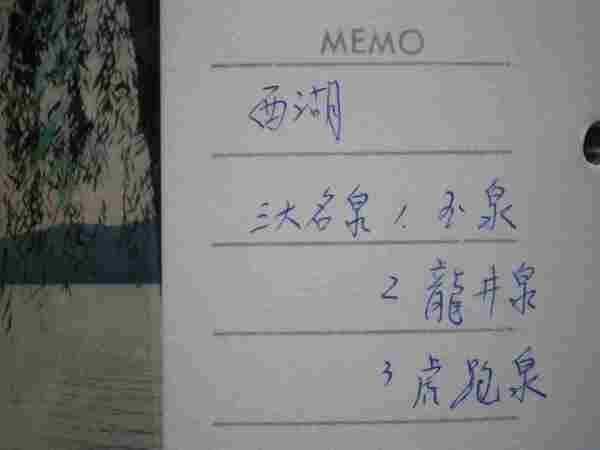 MEMO
西湖
三大名泉 1 玉泉
2 龍井泉
3 虎跑泉